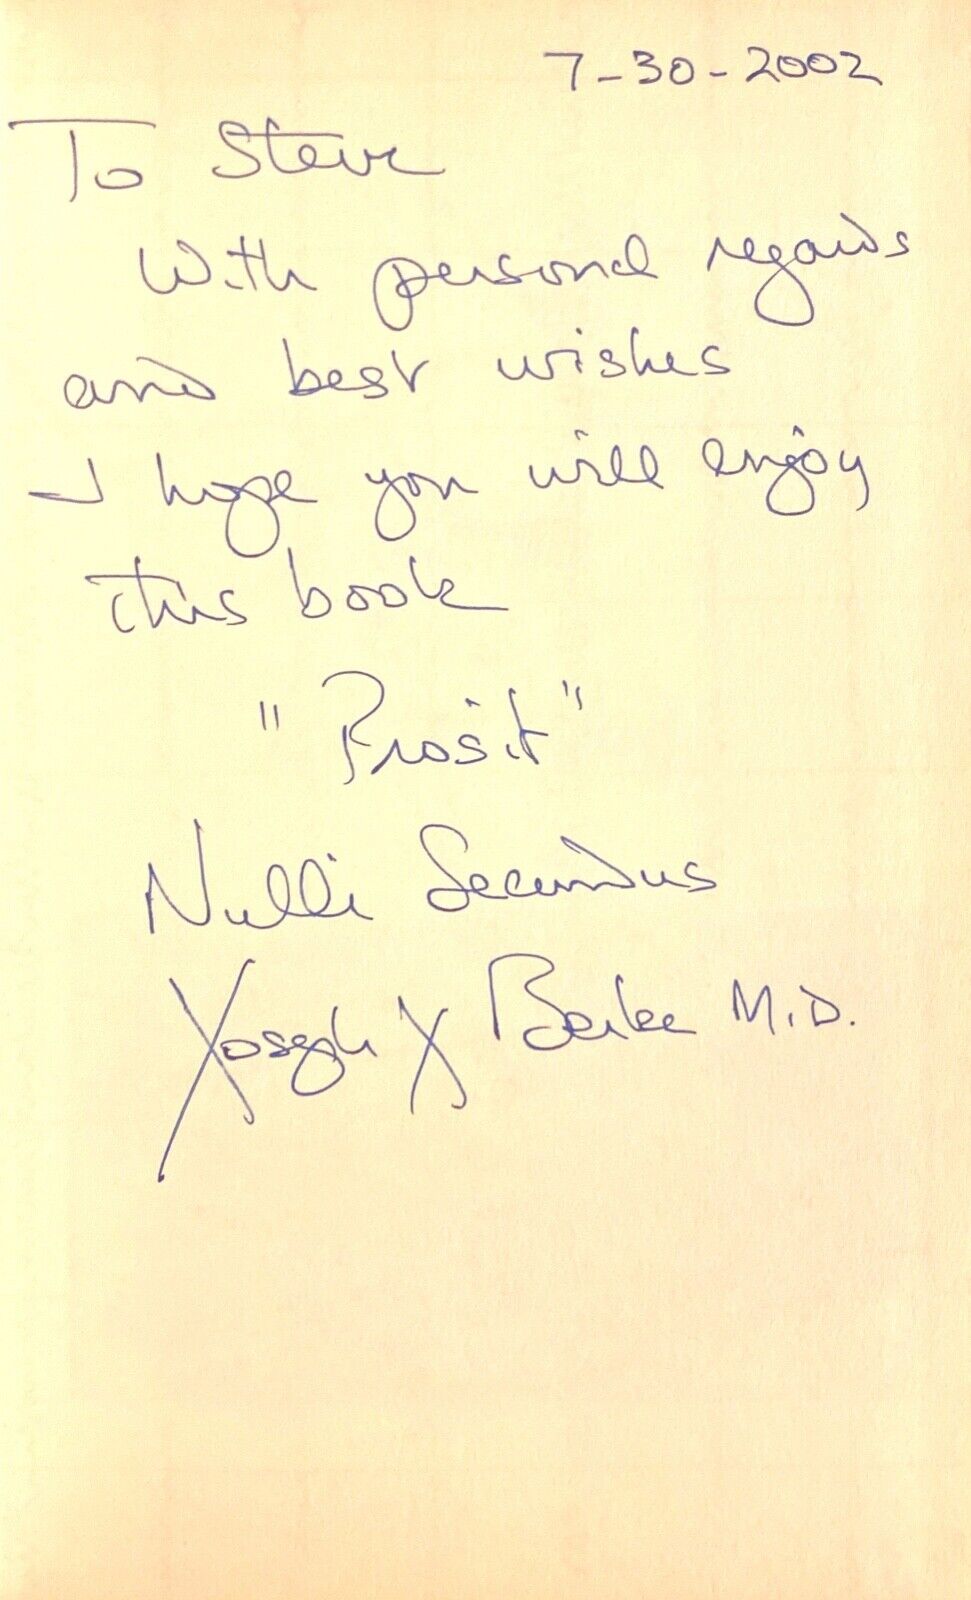 7-30-2002
To Steve
With personal regards
and best wishes
I hope you will enjoy
this book
"Prosit"
Nulli Secundus
Joseph J Berke M.D.